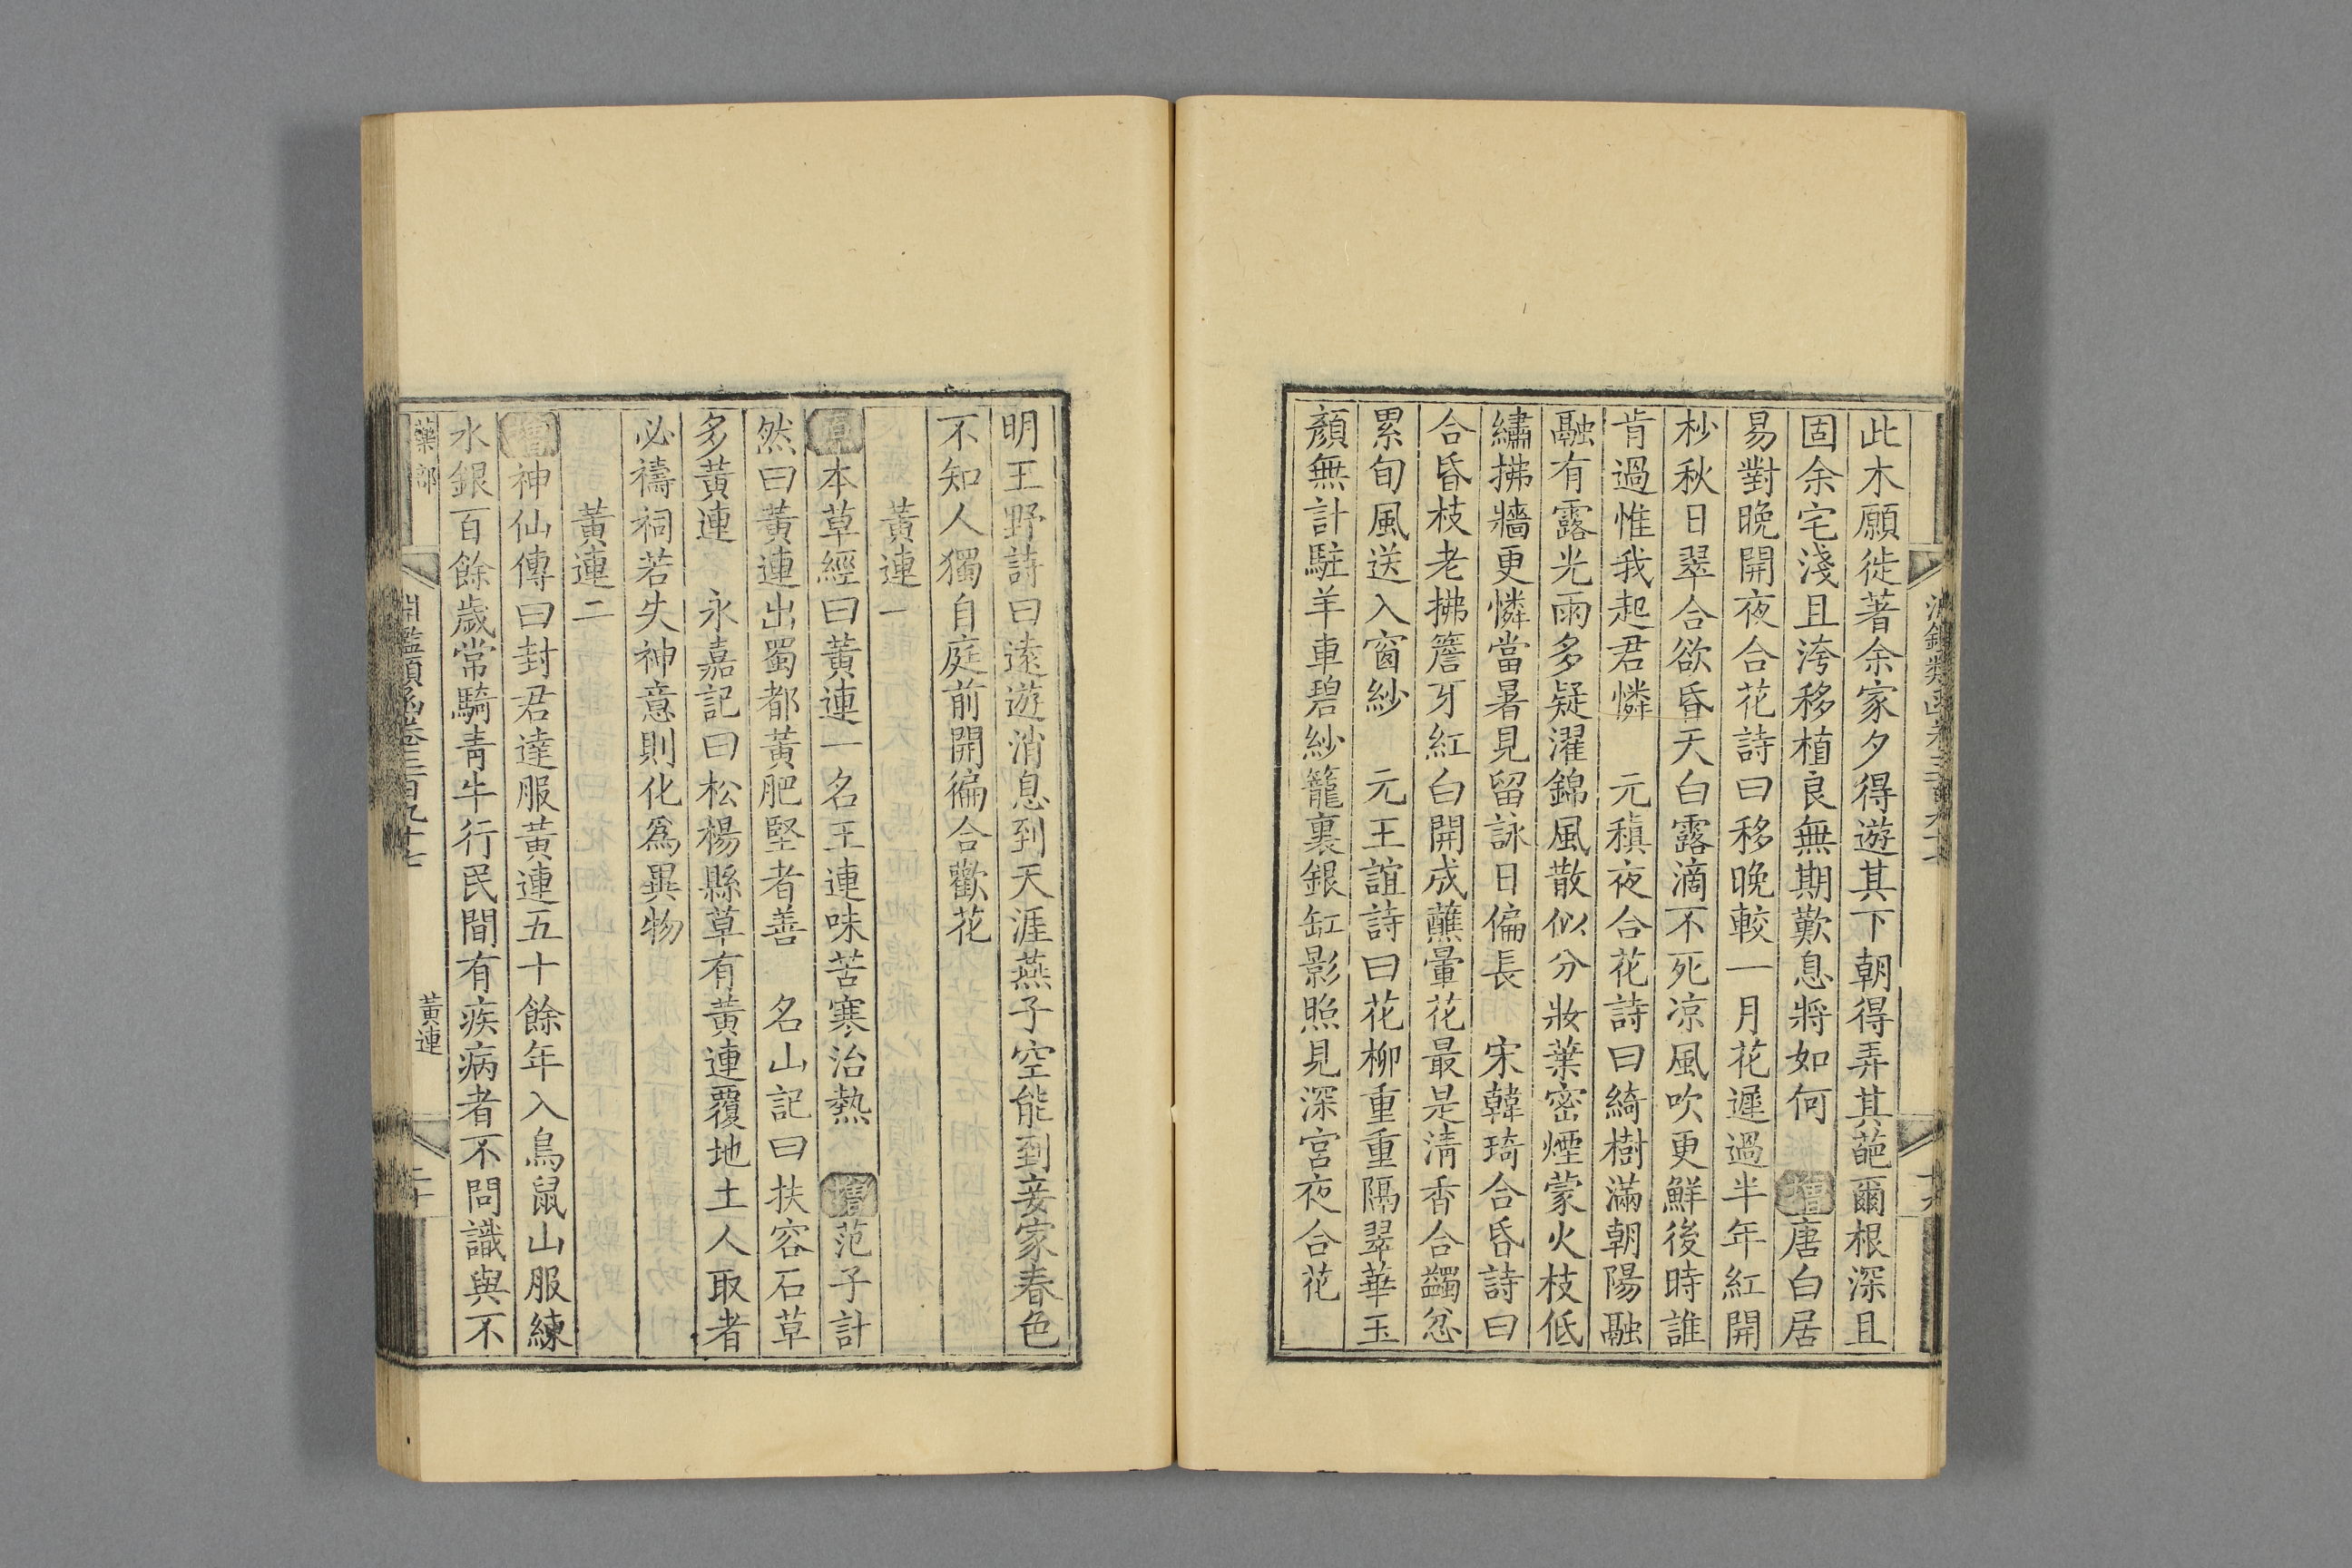 此木願徙著余家夕得遊其下朝得弄其葩爾根深且
固余宅淺且洿移植良無期歎息將如何 增唐白居
易對晚開夜合花詩曰移晚較一月花遲過半年紅開
杪秋日翠合欲昏天白露滴不死凉風吹更鮮後時誰
肯過惟我起君憐 元稹夜合花詩曰綺樹滿朝陽融
融有露光雨多疑濯錦風散似分妝葉密煙蒙火枝低
繡拂牆更憐當暑見留詠日偏長 宋韓琦合昏詩曰
合昏枝老拂簷牙紅白開成蘸暈花最是清香合蠲忿
累旬風送入窗紗 元王誼詩曰花柳重重隔翠華玉
顏無計駐羊車碧紗籠裏銀缸影照見深宮夜合花
明王野詩曰遠遊消息到天涯燕子空能到妾家春色
不知人獨自庭前開徧合歡花
黃連一
原本草經曰黃連一名王連味苦寒治熱 增范子計
然曰黃連出蜀都黃肥堅者善 名山記曰扶容石草
多黃連 永嘉記曰松楊縣草有黃連覆地土人取者
必禱祠若失神意則化爲異物
黃連二
增神仙傳曰封君達服黃連五十餘年入鳥鼠山服練
水銀百餘歲常騎青牛行民間有疾病者不問識與不
藥部
淵鑑類函卷三百九十七
黃連
二十